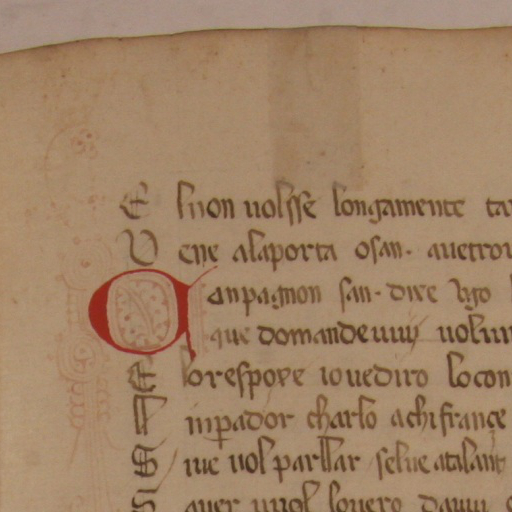 E l non uolsse longamente
V ene alaporta osan. auetrou
Conpagnon san. dixe Ugo
que domande uuy uoluu
E lo respoxe io ue diro lo con
Inperador charlo a chi françe
S iue uol parllar selue atalant
S auer uuol louero dauuy